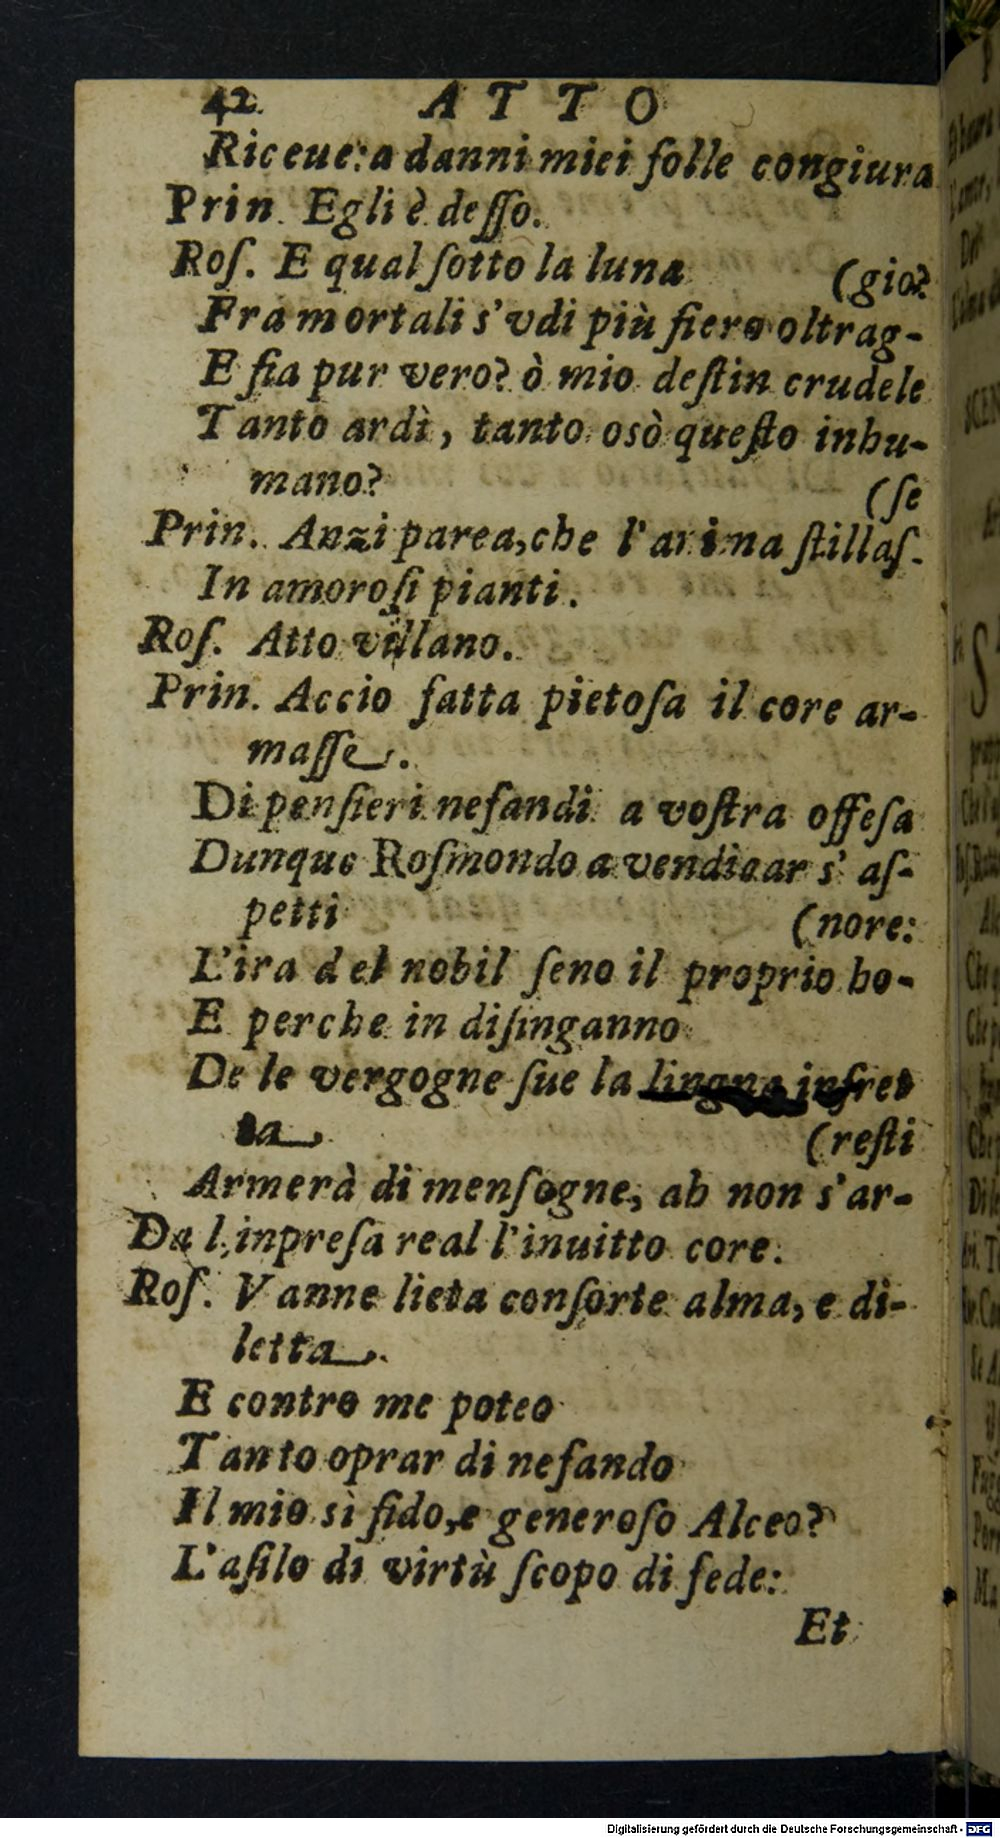 42 ATTO
Riceue: a danni miei folle congiura
Prin. Egli è deſſo.
Roſ. E qual ſotto la luna (gio?
Fra mortali s'vdi più fiero oltrag-
E ſia pur vero? ò mio deſtin crudele
Tanto ardì, tanto osò queſto inhu-
mano? (ſe
Prin. Anzi parea, che l'anima ſtillaſ-
In amoroſi pianti.
Roſ. Atto villano.
Prin. Accio fatta pietoſa il core ar-
maſſe.
Di penſieri nefandi a voſtra offeſa
Dunque Roſmondo a vendicar s' aſ-
petti (nore:
L'ira del nobil ſeno il proprio ho-
E perche in diſinganno
De le vergogne ſue la lingua infret
ta (reſti
Armerà di menſogne, ah non s'ar-
Da l'inpreſa real l'inuitto core.
Roſ. Vanne lieta conſorte alma, e di-
letta.
E contro me poteo
Tanto oprar di nefando
Il mio sì fido, e generoſo Alceo?
L'aſilo di virtù ſcopo di fede:
Et
Digitalisierung gefördert durch die Deutsche Forschungsgemeinschaft - DFG